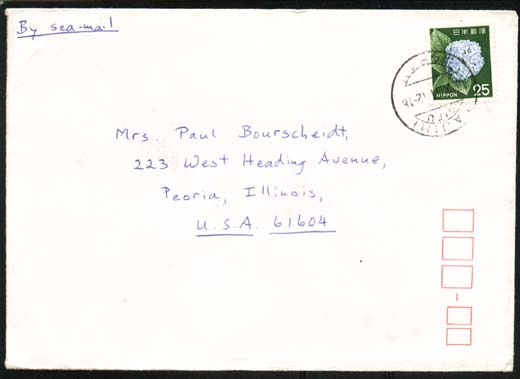 By sea-mail
日本郵便
NIPPON 25
Mrs. Paul Bourscheidt,
223 West Heading Avenue,
Peoria, Illinois,
U.S.A. 61604